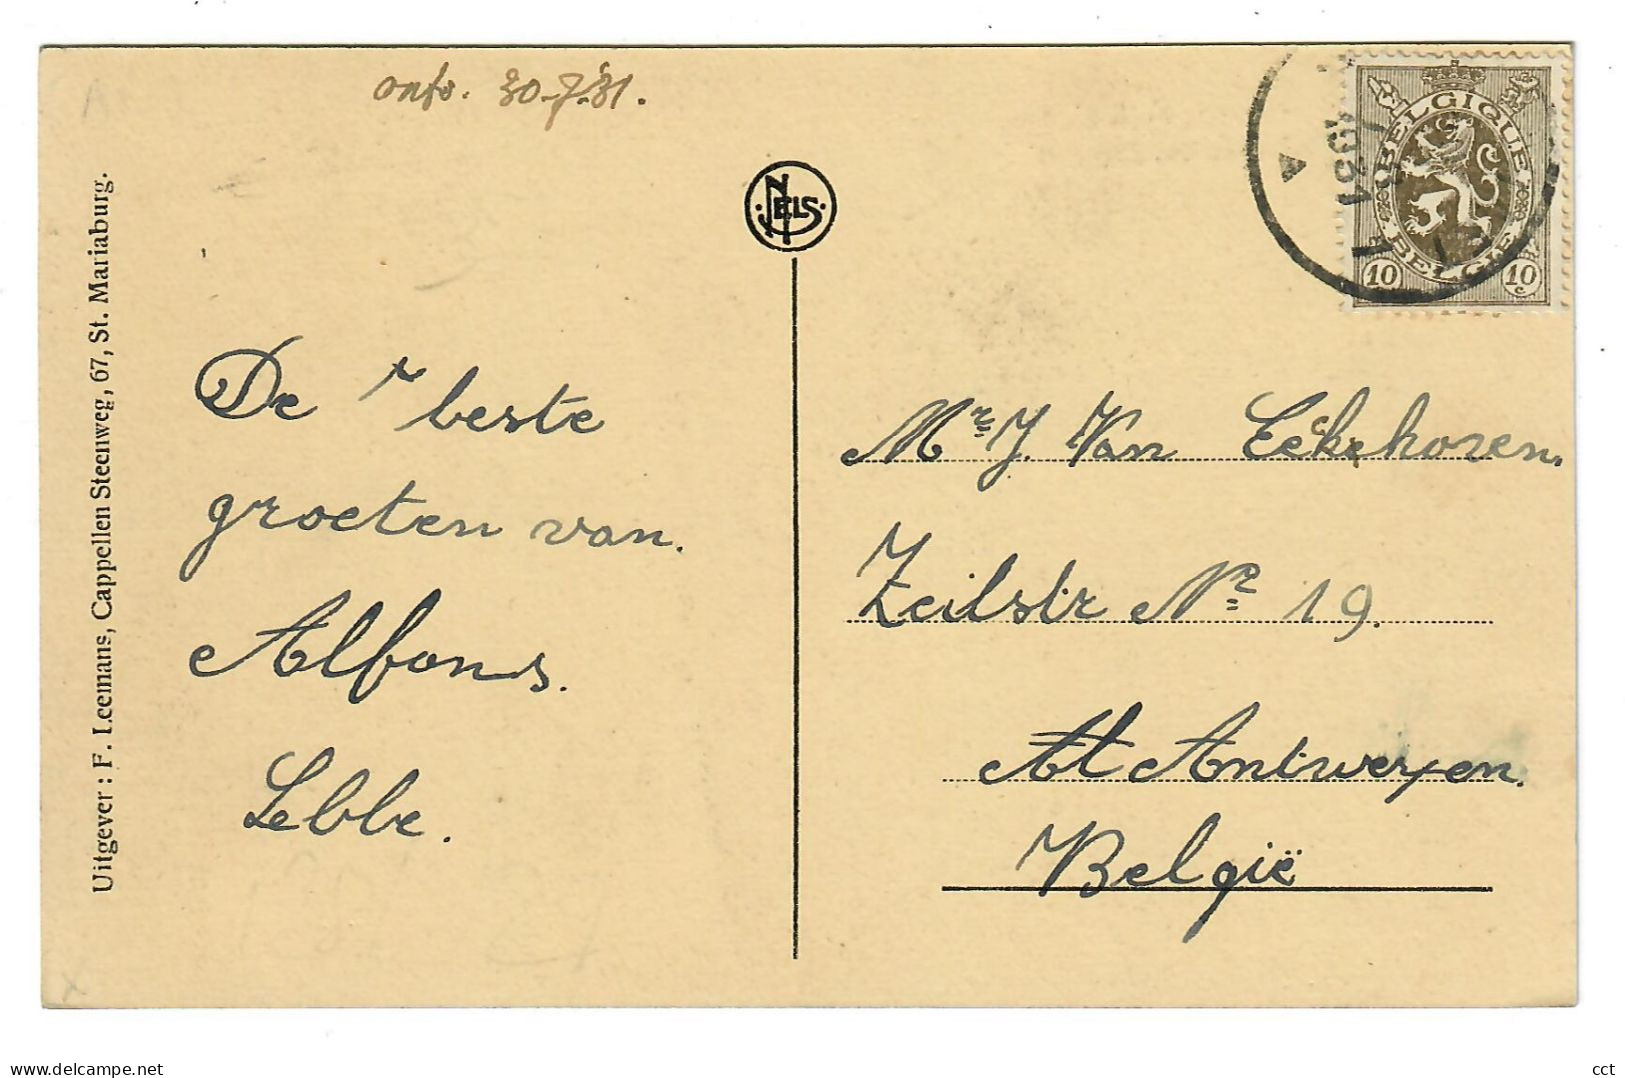 onfv. 30-7-'31.
Uitgever : F. Leemans, Cappellen Steenweg, 67, St. Mariaburg.
NELS
BELGIQUE
BELGIE
10
10
c
1931
De beste
groeten van.
Alfons.
Lebbe.
Mr. J. Van Eekhoven.
Zeilstr Nr 19.
At Antwerpen.
België
delcampe.net
cct